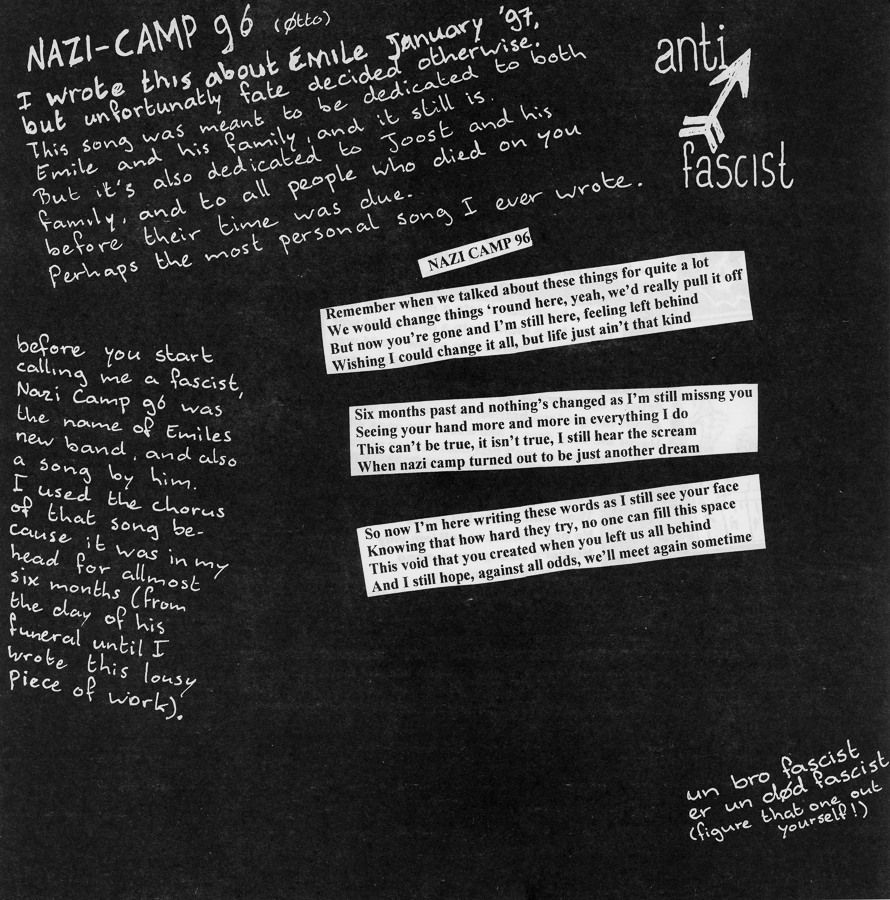 NAZI-CAMP 96 (Øtto)
I wrote this about EMILE January '97,
but unfortunatly fate decided otherwise.
This song was meant to be dedicated to both
Emile and his family, and it still is.
But it's also dedicated to Joost and his
family, and to all people who died on you
before their time was due.
Perhaps the most personal song I ever wrote.
anti
fascist
NAZI CAMP 96
Remember when we talked about these things for quite a lot
We would change things ‘round here, yeah, we’d really pull it off
But now you’re gone and I’m still here, feeling left behind
Wishing I could change it all, but life just ain’t that kind
Six months past and nothing’s changed as I’m still missng you
Seeing your hand more and more in everything I do
This can’t be true, it isn’t true, I still hear the scream
When nazi camp turned out to be just another dream
So now I’m here writing these words as I still see your face
Knowing that how hard they try, no one can fill this space
This void that you created when you left us all behind
And I still hope, against all odds, we’ll meet again sometime
before you start
calling me a fascist,
Nazi Camp 96 was
the name of Emiles
new band, and also
a song by him.
I used the chorus
of that song be-
cause it was in my
head for allmost
six months (from
the day of his
funeral until I
wrote this lousy
piece of work).
un bro fascist
er un død fascist
(figure that one out
yourself!)